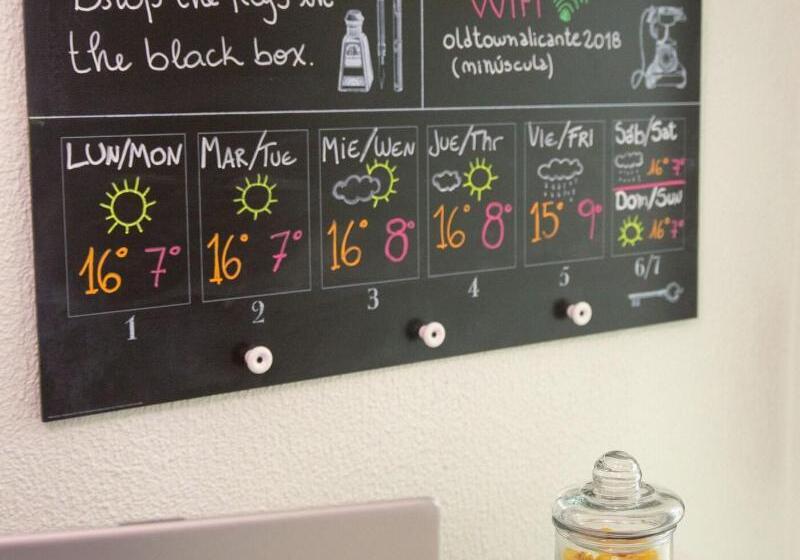 Dstop the keys in
the black box.
WIFI
oldtownalicante2018
(minúscula)
LUN/MON
16° 7°
1
MAR/TUE
16° 7°
2
MIE/WEN
16° 8°
3
JUE/Thr
16° 8°
4
VIE/FRI
15° 9°
5
Sáb/Sat
16° 7°
Dom/Sun
16° 7°
6/7